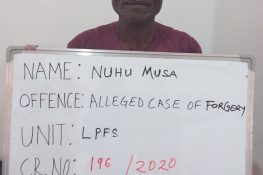 NAME: NUHU MUSA
OFFENCE: ALLEGED CASE OF FORGERY
UNIT: LPFS
C.R.NO: 196/2020